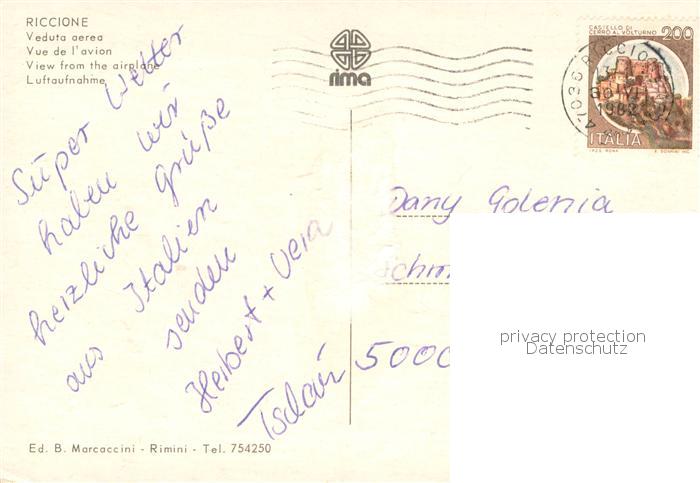 RICCIONE
Veduta aerea
Vue de l'avion
View from the airplane
Luftaufnahme
rima
CASTELLO DI
CERRO AL VOLTURNO
200
47036 RICCIO
1982
ITALIA
I.P.Z.S. ROMA
Süper Wetter
haben wir
herzliche Grüße
aus Italien
senden
Herbert + Vera
Tschau
Dany Golenia
5000
privacy protection
Datenschutz
Ed. B. Marcaccini - Rimini - Tel. 754250